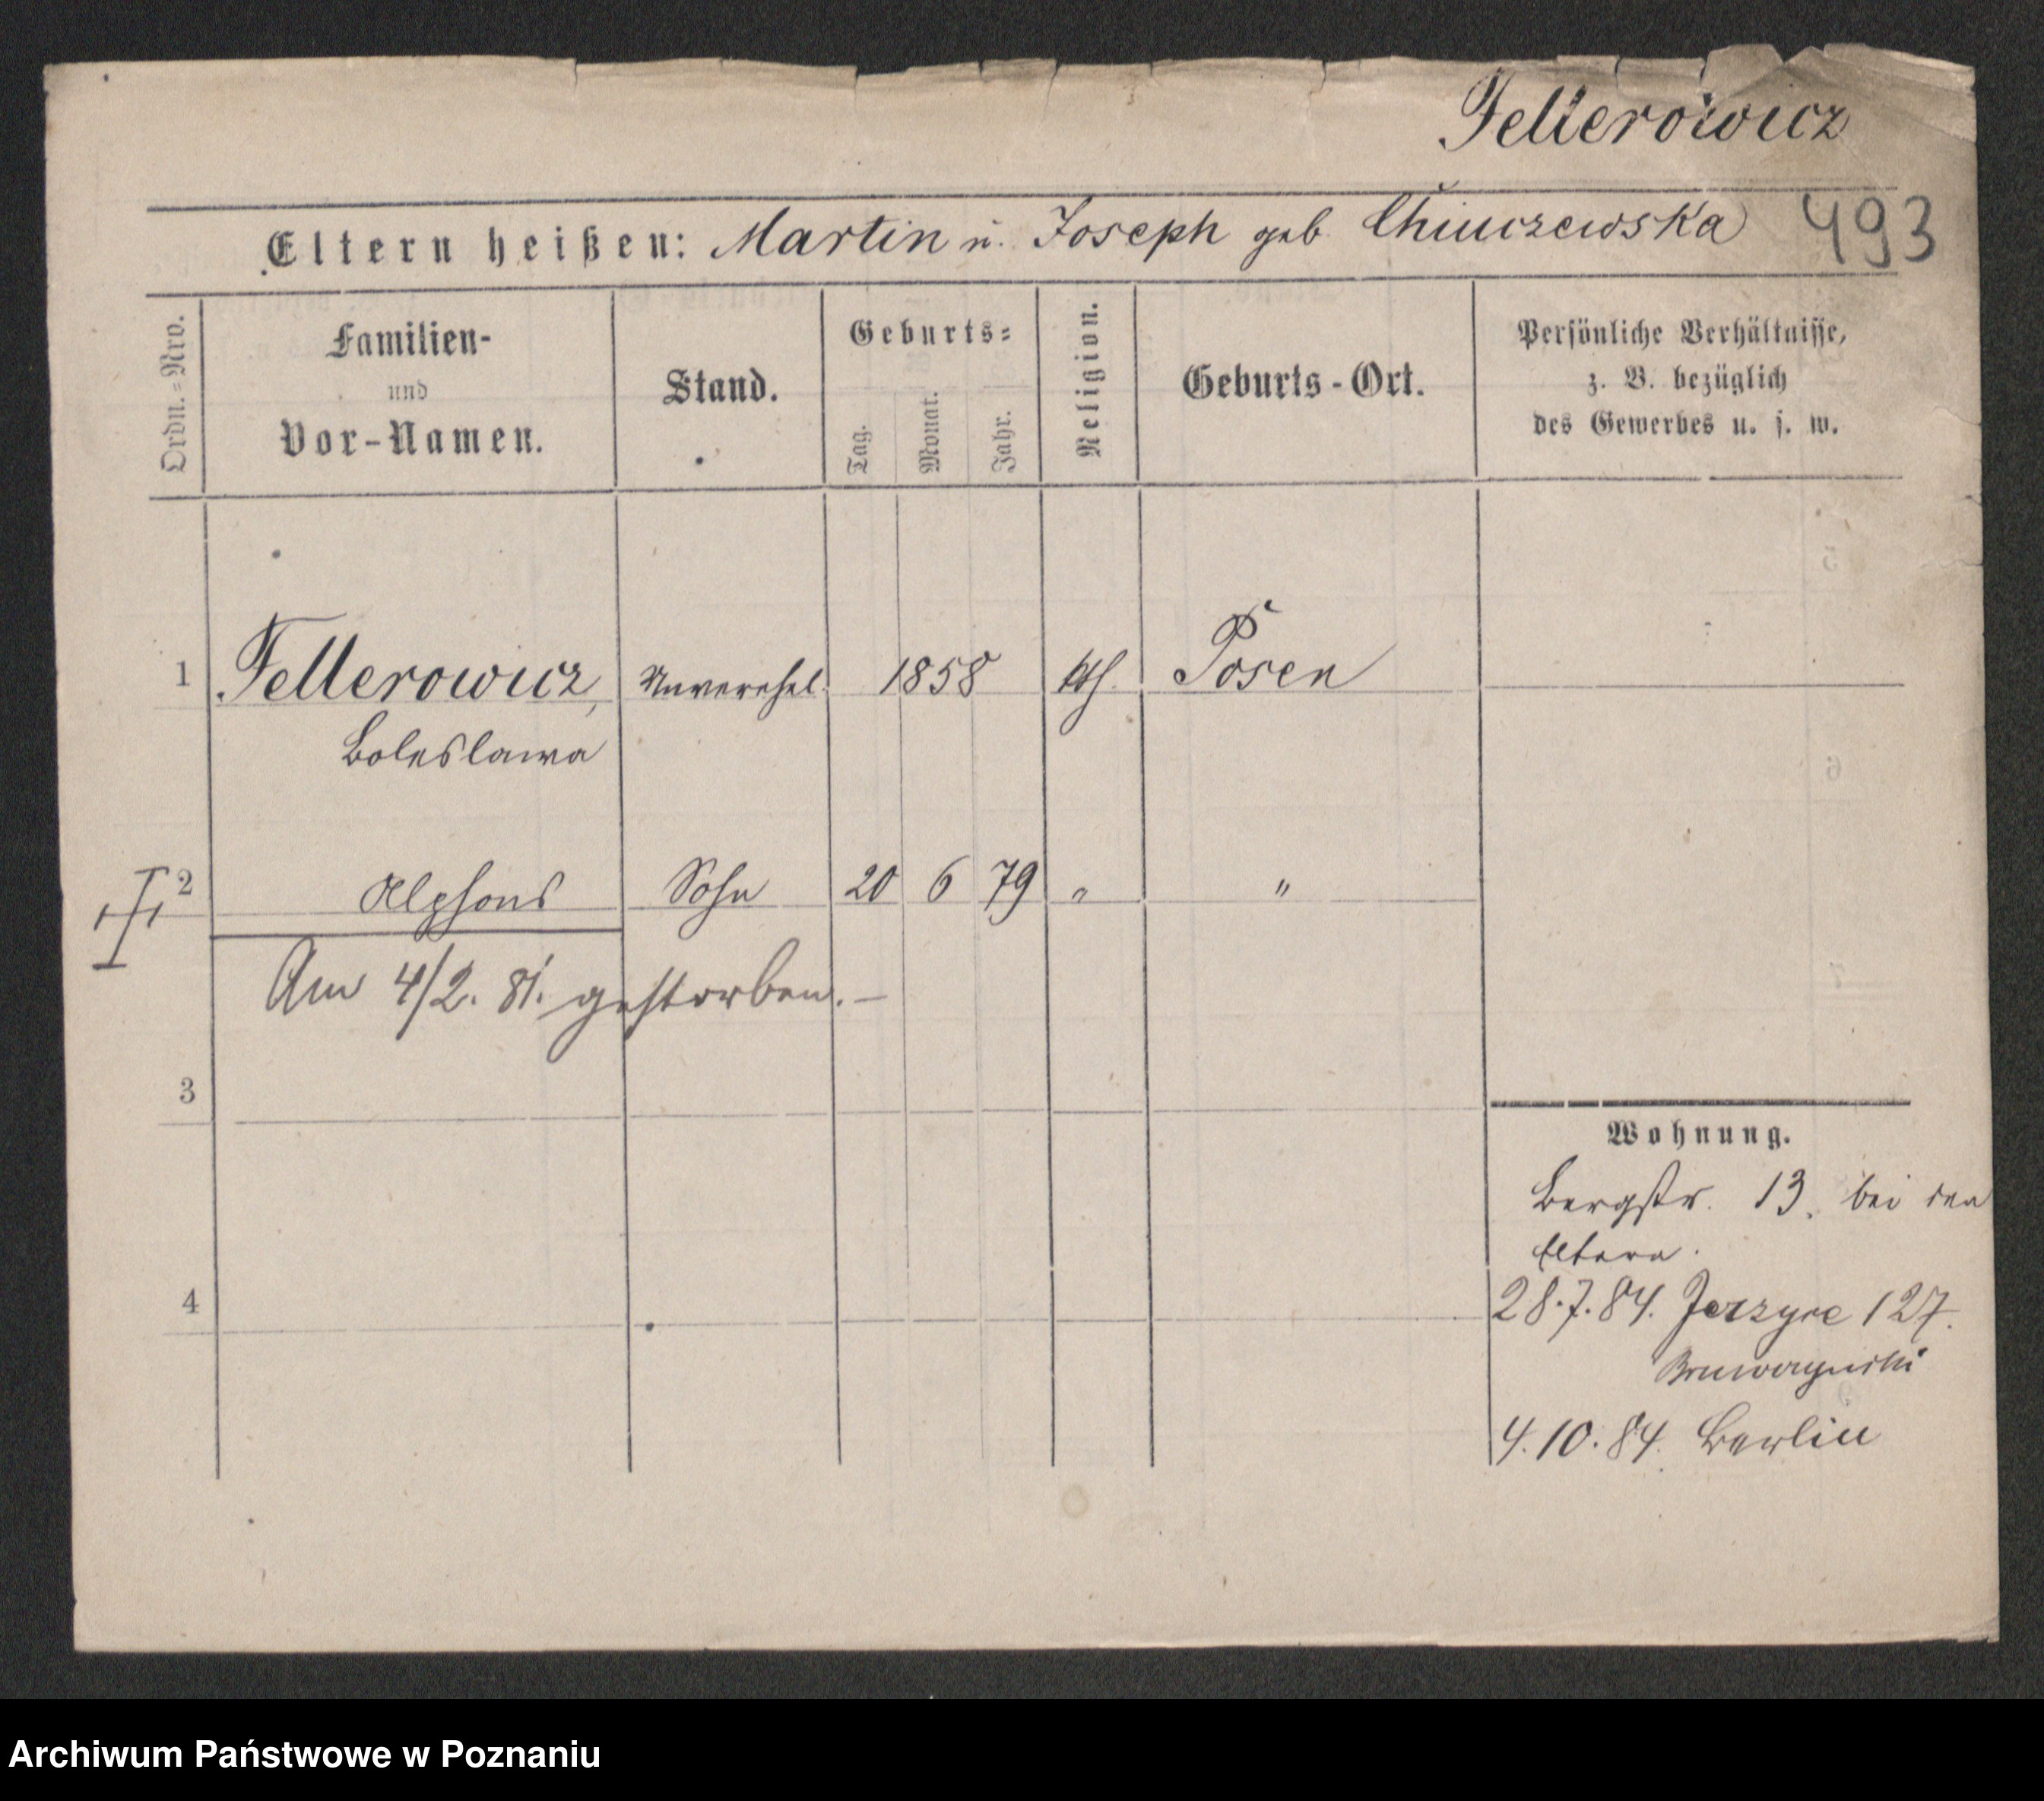 Fellerowicz
Eltern heißen: Martin u. Joseph geb Chiuczewska 493
Ordn.=Nro.
Familien-
und
Vor-Namen.
Stand.
Geburts=
Tag.
Monat.
Jahr.
Religion.
Geburts-Ort.
Persönliche Verhältnisse,
z. B. bezüglich
des Gewerbes u. s. w.
1 Fellerowicz, Unverehel. 1858 kth. Posen
Boleslawa
2 Alphons Sohn 20 6 79 " "
Am 4/2. 81. gestorben. –
3
Wohnung.
Bergstr. 13. bei den
Eltern.
4
28.7.84. Jerzyce 127.
4.10.84. Berlin
Archiwum Państwowe w Poznaniu